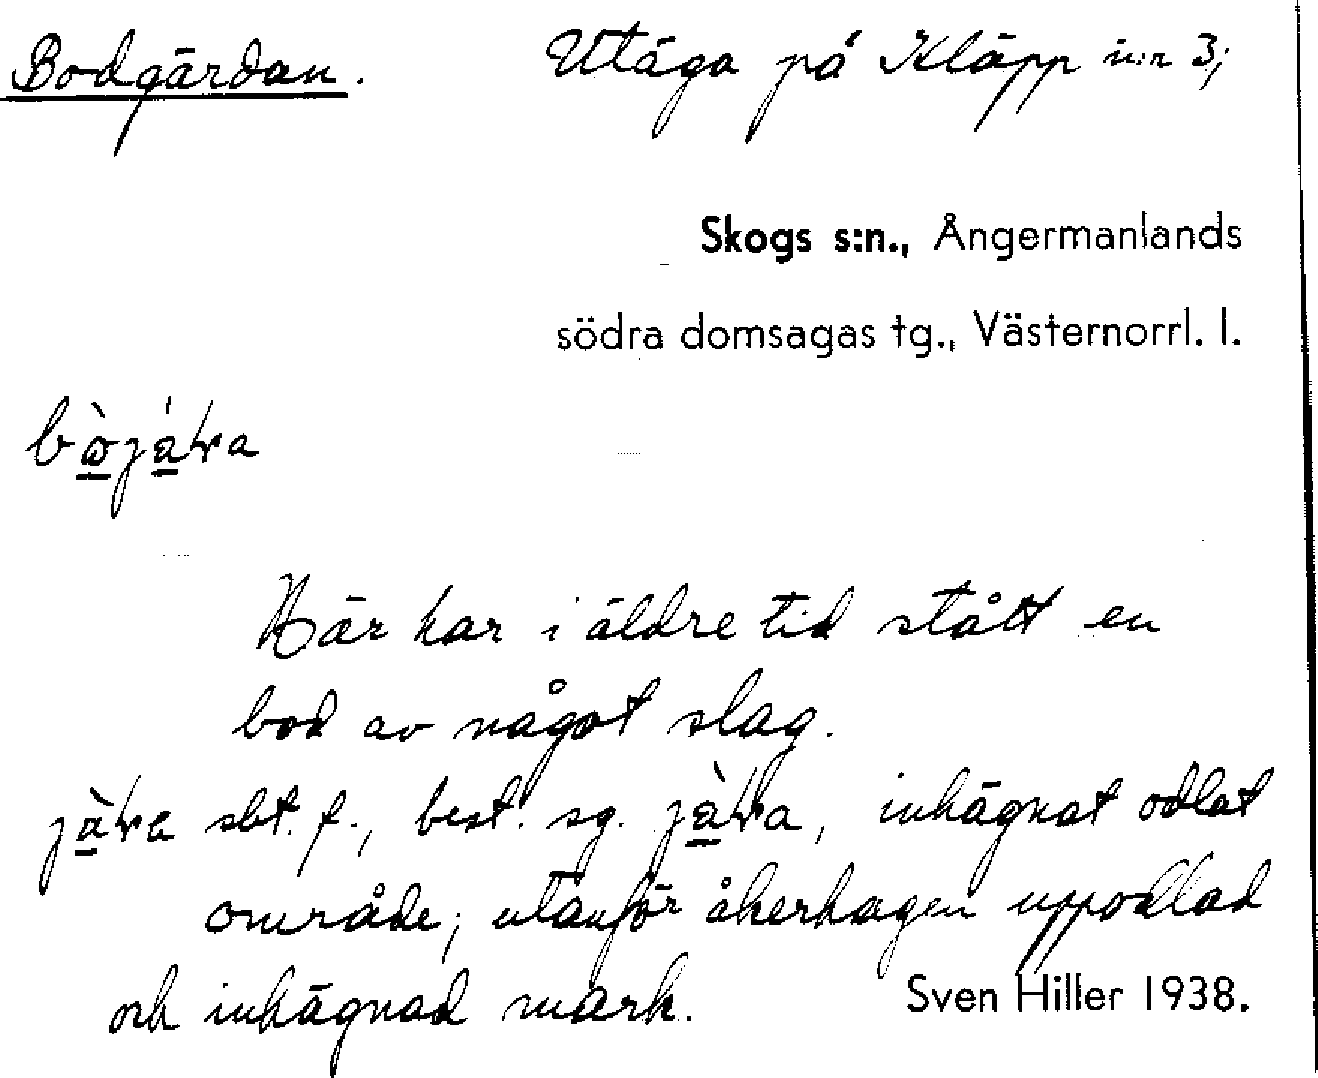 Bodgärdan. Utäga på Kläpp n:r 3;
Skogs s:n., Ångermanlands
södra domsagas tg., Västernorrl. l.
Här har i äldre tid stått en
bod av något slag.
sbt. f., best. sg. inhägnat odlat
område; utanför åkerhagen uppodlad
och inhägnad mark. Sven Hiller 1938.